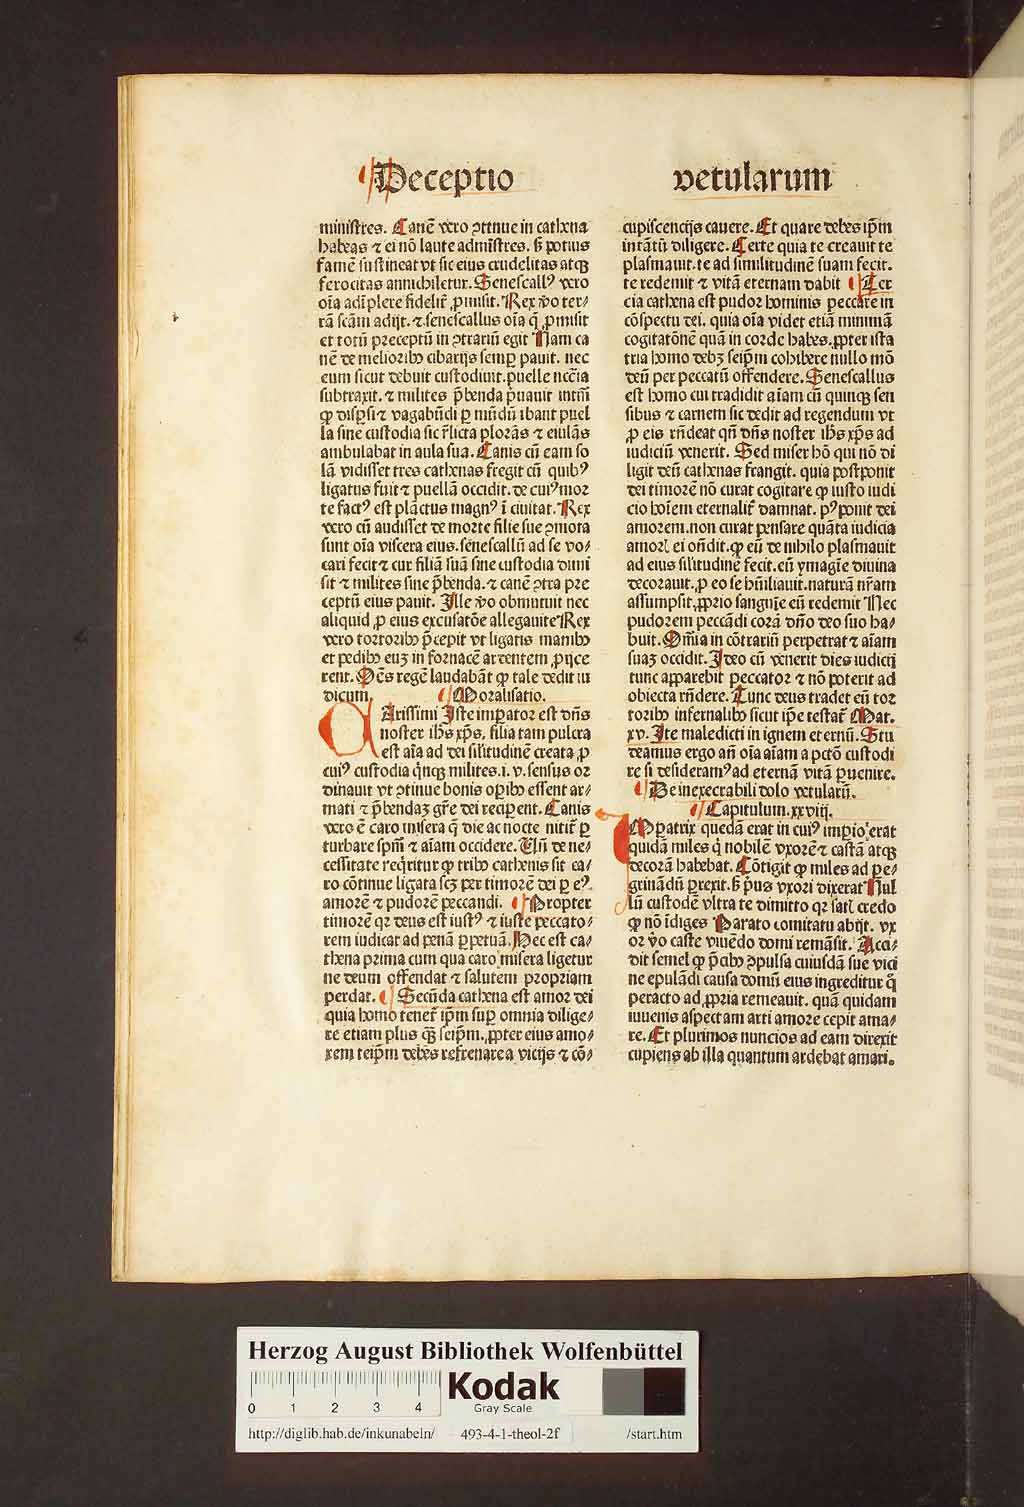 Deceptio vetularum
ministres. Canē vero ꝯtinue in cathena
habeas ⁊ ei nō laute admīstres. sꝫ potius
famē sustineat vt sic eius crudelitas atqꝫ
ferocitas annichiletur. Senescallꝰ vero
oīa adīplere fidelit̄ ꝓmisit. Rex v̊o ter⸗
rā scām adijt. ⁊ senescallus oīa q̄ ꝓmisit
et totū preceptū in ꝯtrariū egit Nam ca
nē de melioribꝰ cibarijs semꝑ pauit. nec
eum sicut debuit custodiuit. puelle nccīa
subtraxit. ⁊ milites p̄benda p̄uauit intm̄
ꝙ disꝑsi ⁊ vagabūdi ꝑ mūdū ibant puel
la sine custodia sic r̄licta plorās ⁊ eiulās
ambulabat in aula sua. Canis cū eam so
lā vidisset tres cathenas fregit cū quibꝰ
ligatus fuit ⁊ puellā occidit. de cuiꝰ mor
te factꝰ est plāctus magnꝰ ī ciuitat̄. Rex
vero cū audisset de morte filie sue ꝯmota
sunt oīa viscera eius. senescallū ad se vo⸗
cari fecit ⁊ cur filiā suā sine custodia dimi
sit ⁊ milites sine p̄benda. ⁊ canē ꝯtra pre
ceptū eius pauit. Ille v̊o obmutuit nec
aliquid ꝓ eius excusatōe allegauit Rex
vero tortoribꝰ p̄cepit vt ligatis manibꝰ
et pedibꝰ euꝫ in fornacē ardentem ꝓijce
rent. Oēs regē laudabāt ꝙ tale dedit iu
dicium. Moralisatio.
Arissimi Iste imꝑator est dn̄s
noster ihs̄ xp̄s. filia tam pulcra
est aīa ad dei sil̄itudinē creata ꝓ
cuiꝰ custodia q̄nqꝫ milites. i. v. sensus or
dinauit vt ꝯtinue bonis oꝑibꝰ essent ar⸗
mati ⁊ p̄bendaꝫ gr̄e dei reciꝑent. Canis
vero ē caro misera q̄ die ac nocte nitit̄ ꝑ
turbare spm̄ ⁊ aīam occidere. Vn̄ de ne⸗
cessitate req̄ritur ꝙ tribꝰ cathenis sit ca⸗
ro cōtinue ligata scꝫ per timorē dei ꝑ eꝰ
amorē ⁊ pudorē peccandi. Propter
timorē qꝛ deus est iustꝰ ⁊ iuste peccato⸗
rem iudicat ad penā ꝑpetuā. Hec est ca⸗
thena prima cum qua caro misera ligetur
ne deum offendat ⁊ salutem propriam
perdat. Secūda cathena est amor dei
quia homo tenet̄ ip̄m suꝑ omnia dilige⸗
re etiam plus qꝫ seip̄m. ꝓpter eius amo⸗
rem teip̄m debes refrenare a vicijs ⁊ cō⸗
cupiscencijs cauere. Et quare debes ip̄m
intātū diligere. Certe quia te creauit te
plasmauit. te ad similitudinē suam fecit.
te redemit ⁊ vitā eternam dabit Ter
cia cathena est pudor hominis peccare in
cōspectu dei. quia oīa videt etiā minimā
cogitatōnē quā in corde habes. ꝓpter ista
tria homo debꝫ seip̄m cohibere nullo mō
deū per peccatū offendere. Senescallus
est homo cui tradidit aīam cū quinqꝫ sen
sibus ⁊ carnem sic dedit ad regendum vt
ꝓ eis rn̄deat qn̄ dn̄s noster ihs̄ xp̄s ad
iudiciū venerit. Sed miser hō qui nō di
ligit deū cathenas frangit. quia postponit
dei timorē nō curat cogitare ꝙ iusto iudi
cio hoīem eternalit̄ damnat. pꝰponit dei
amorem. non curat pensare quāta iudicia
amorꝭ ei on̄dit. ꝙ eū de nihilo plasmauit
ad eius sil̄itudinē fecit. eū ymagīe diuina
decorauit. ꝓ eo se hūiliauit. naturā nr̄am
assumpsit. ꝓprio sanguīe eū redemit Nec
pudorem peccādi corā dn̄o deo suo ha⸗
buit. Om̄ia in cōtrariū perpetrat ⁊ aīam
suaꝫ occidit. Ideo cū venerit dies iudicij
tunc apparebit peccator ⁊ nō poterit ad
obiecta rn̄dere. Tunc deus tradet eū tor
toribꝰ infernalibꝰ sicut ip̄e testat̄ Mat.
xv. Ite maledicti in ignem eternū. Stu
deamus ergo an̄ oīa aīam a pctō custodi
re si desideramꝰ ad eternā vitā ꝑuenire.
De inexecrabili dolo vetularū.
Capitulum. xxviij.
Mperatrix quedā erat in cuiꝰ imꝑio erat
quidā miles q̄ nobilē vxorē ⁊ castā atqꝫ
decorā habebat. Cōtigit ꝙ miles ad ꝑe⸗
grinādū ꝑrexit. sꝫ p̄us vxori dixerat Nul
lū custodē vltra te dimitto qꝛ satꝭ credo
ꝙ nō īdiges Parato comitatu abijt. vx
or v̊o caste viuēdo domi remāsit. Acci⸗
dit semel ꝙ p̄cibꝰ ꝯpulsa cuiusdā sue vici
ne epulādi causa domū eius ingreditur q̊
peracto ad ꝓpria remeauit. quā quidam
iuuenis aspectam arti amore cepit ama⸗
re. Et plurimos nuncios ad eam direxit
cupiens ab illa quantum ardebat amari.
Herzog August Bibliothek Wolfenbüttel
0 1 2 3 4
Kodak
Gray Scale
http://diglib.hab.de/inkunabeln/ 493-4-1-theol-2f /start.htm